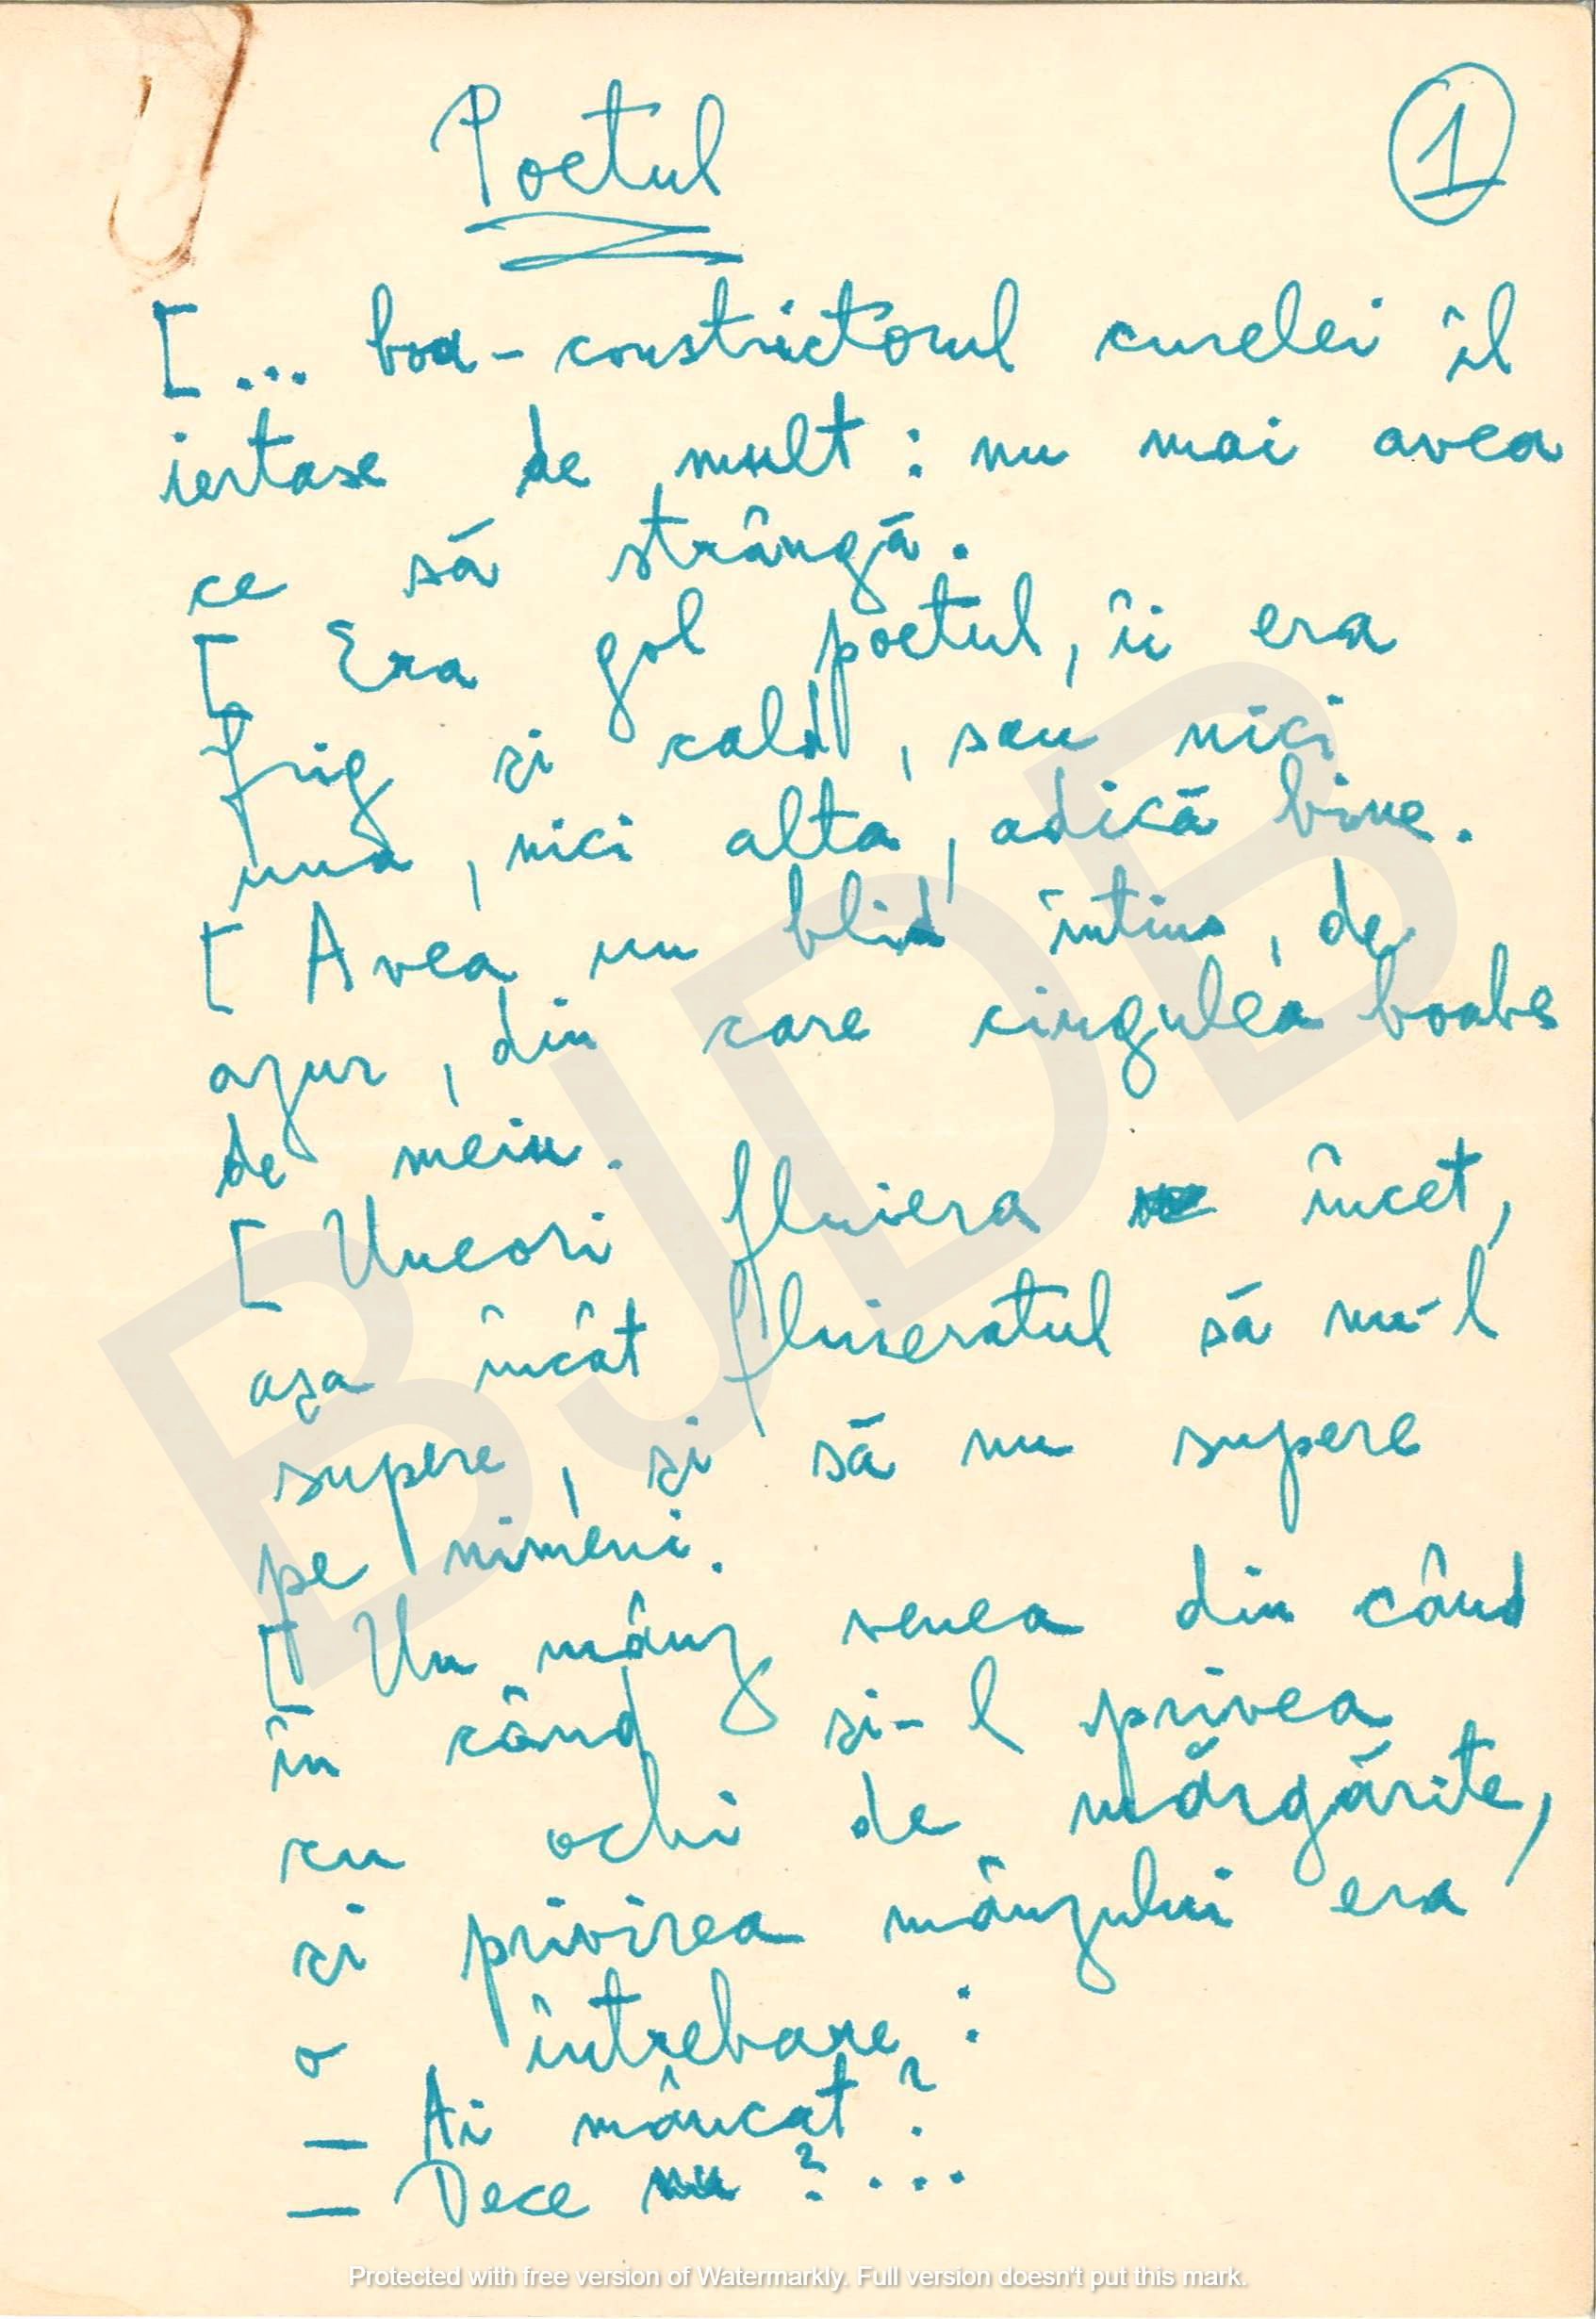 Poetul
1
[... boa-constrictorul curelei îl
iertase de mult : nu mai avea
ce să strângă.
[ Era gol poetul, îi era
frig și cald, sau nici
una, nici alta, adică bine.
[ Avea un blid întins, de
azur, din care cingulea boabe
de mein.
[ Uneori fluiera încet,
așa încât fluieratul să nu-l
supere, și să nu supere
pe nimeni.
[ Un mânz venea din când
în când și-l privea
cu ochi de mărgărite,
și privirea mânzului era
o întrebare :
— Ai mâncat ?
— Dece nu ?...
BJDB
Protected with free version of Watermarkly. Full version doesn't put this mark.